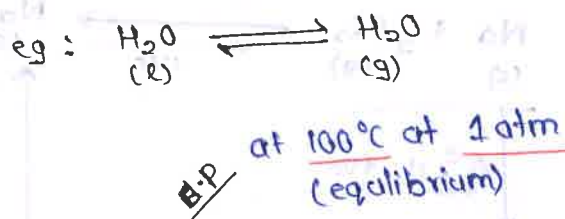 eg : H₂O ⇌ H₂O
(l) (g)
at 100°C at 1 atm
B.P (equlibrium)